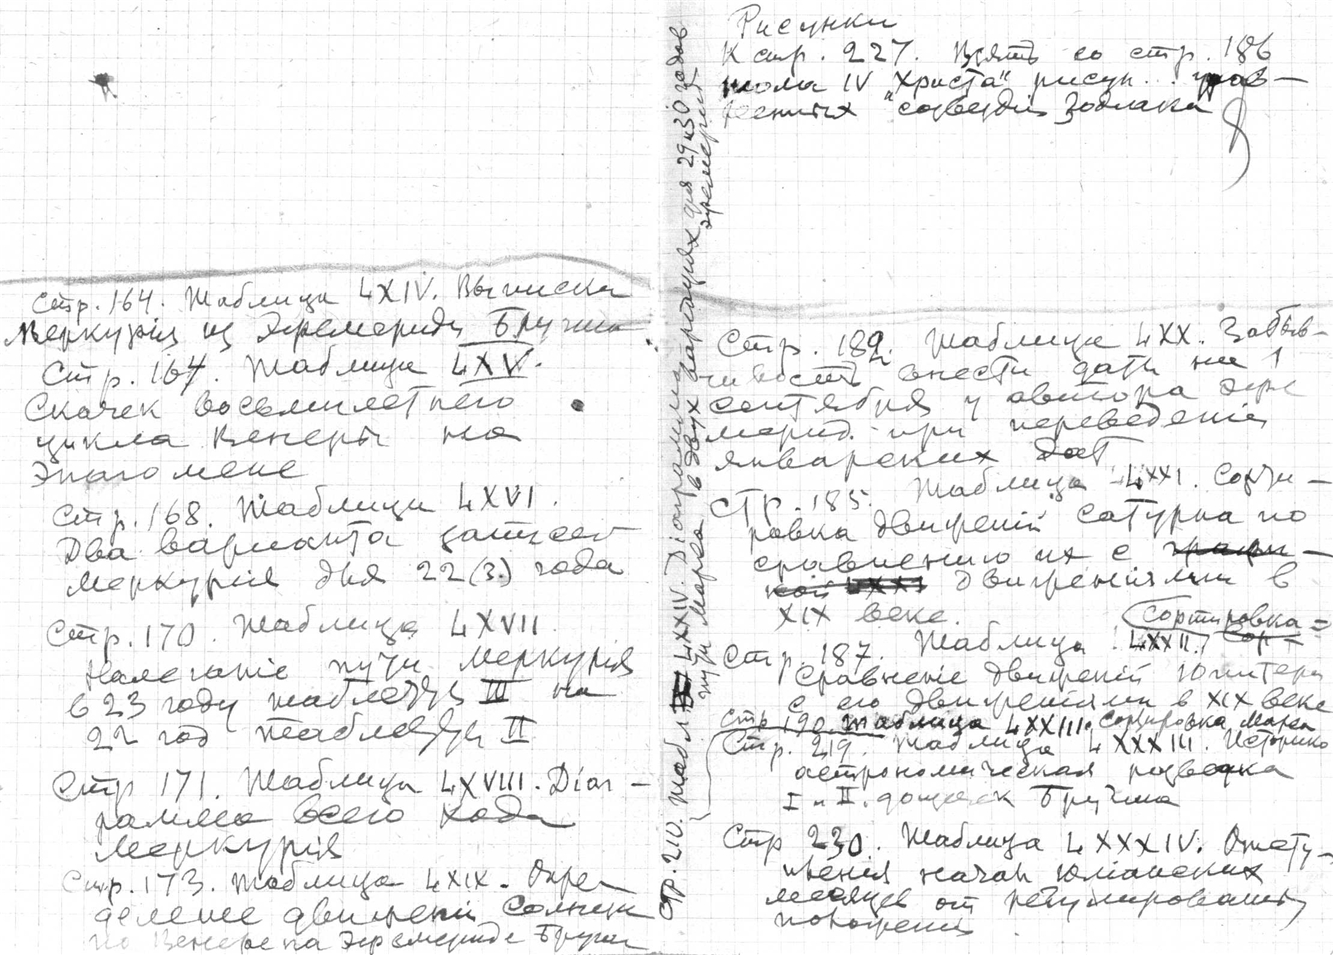 Стр. 164. Таблица LXIV. Выписка
Меркурія из Эфемерид Бругша
Стр. 164. Таблица LXV.
Скачек восьмилетнего
цикла Венеры на
Эпагомене
Стр. 168. Таблица LXVI.
Два варианта записей
Меркурія для 22(3) года
Стр. 170. Таблица LXVII
Налеганіе пути Меркурія
в 23 году таблетки III на
22 год таблетки II
Стр 171. Таблица LXVIII. Діаг-
рамма всего хода
Меркурія
Стр. 173. Таблица LXIX. Опре-
деление движеній Солнца
по Венере на Эфемериде Бругша
Стр. 210. Табл LXXIV. Діаграмма
пути Марса в двух вариациях для 29 и 30 годов
эфемерид
Рисунки
К стр. 227. Взять со стр. 186
тома IV "Христа" рисун.
"созвездій Зодиака"
Стр. 182. Таблица LXX. Забыв-
чивость внести даты на 1
сентября у автора эфе
мерид при переведеніи
январских дат
Стр. 185. Таблица LXXI. Сорти-
ровка движеній Сатурна по
сравнению их с
движеніями в
XIX веке.
Сортировка
Стр. 187. Таблица LXXII.
Сравненіе движеній Юпитера
с его движеніями в XIX веке
Стр 190 Таблица LXXIII. Сортировка Марса
Стр. 219. Таблица LXXXIII. Историко
астрономическая разведка
I и II. дощечек Бругша
Стр 230. Таблица LXXXIV. Отсту-
пления начал юлианских
месяцев от